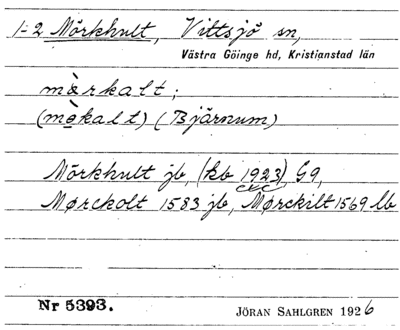 1-2 Mörkhult, Vittsjö sn,
Västra Göinge hd, Kristianstad län
mæ̀rkalt;
(mø̀kalt) (Bjärnum)
Mörkhult jb, (kb 1923), G9,
Mørckolt 1583 jb, Mørckilt 1569 lb
Nr 5393.
JÖRAN SAHLGREN 1926